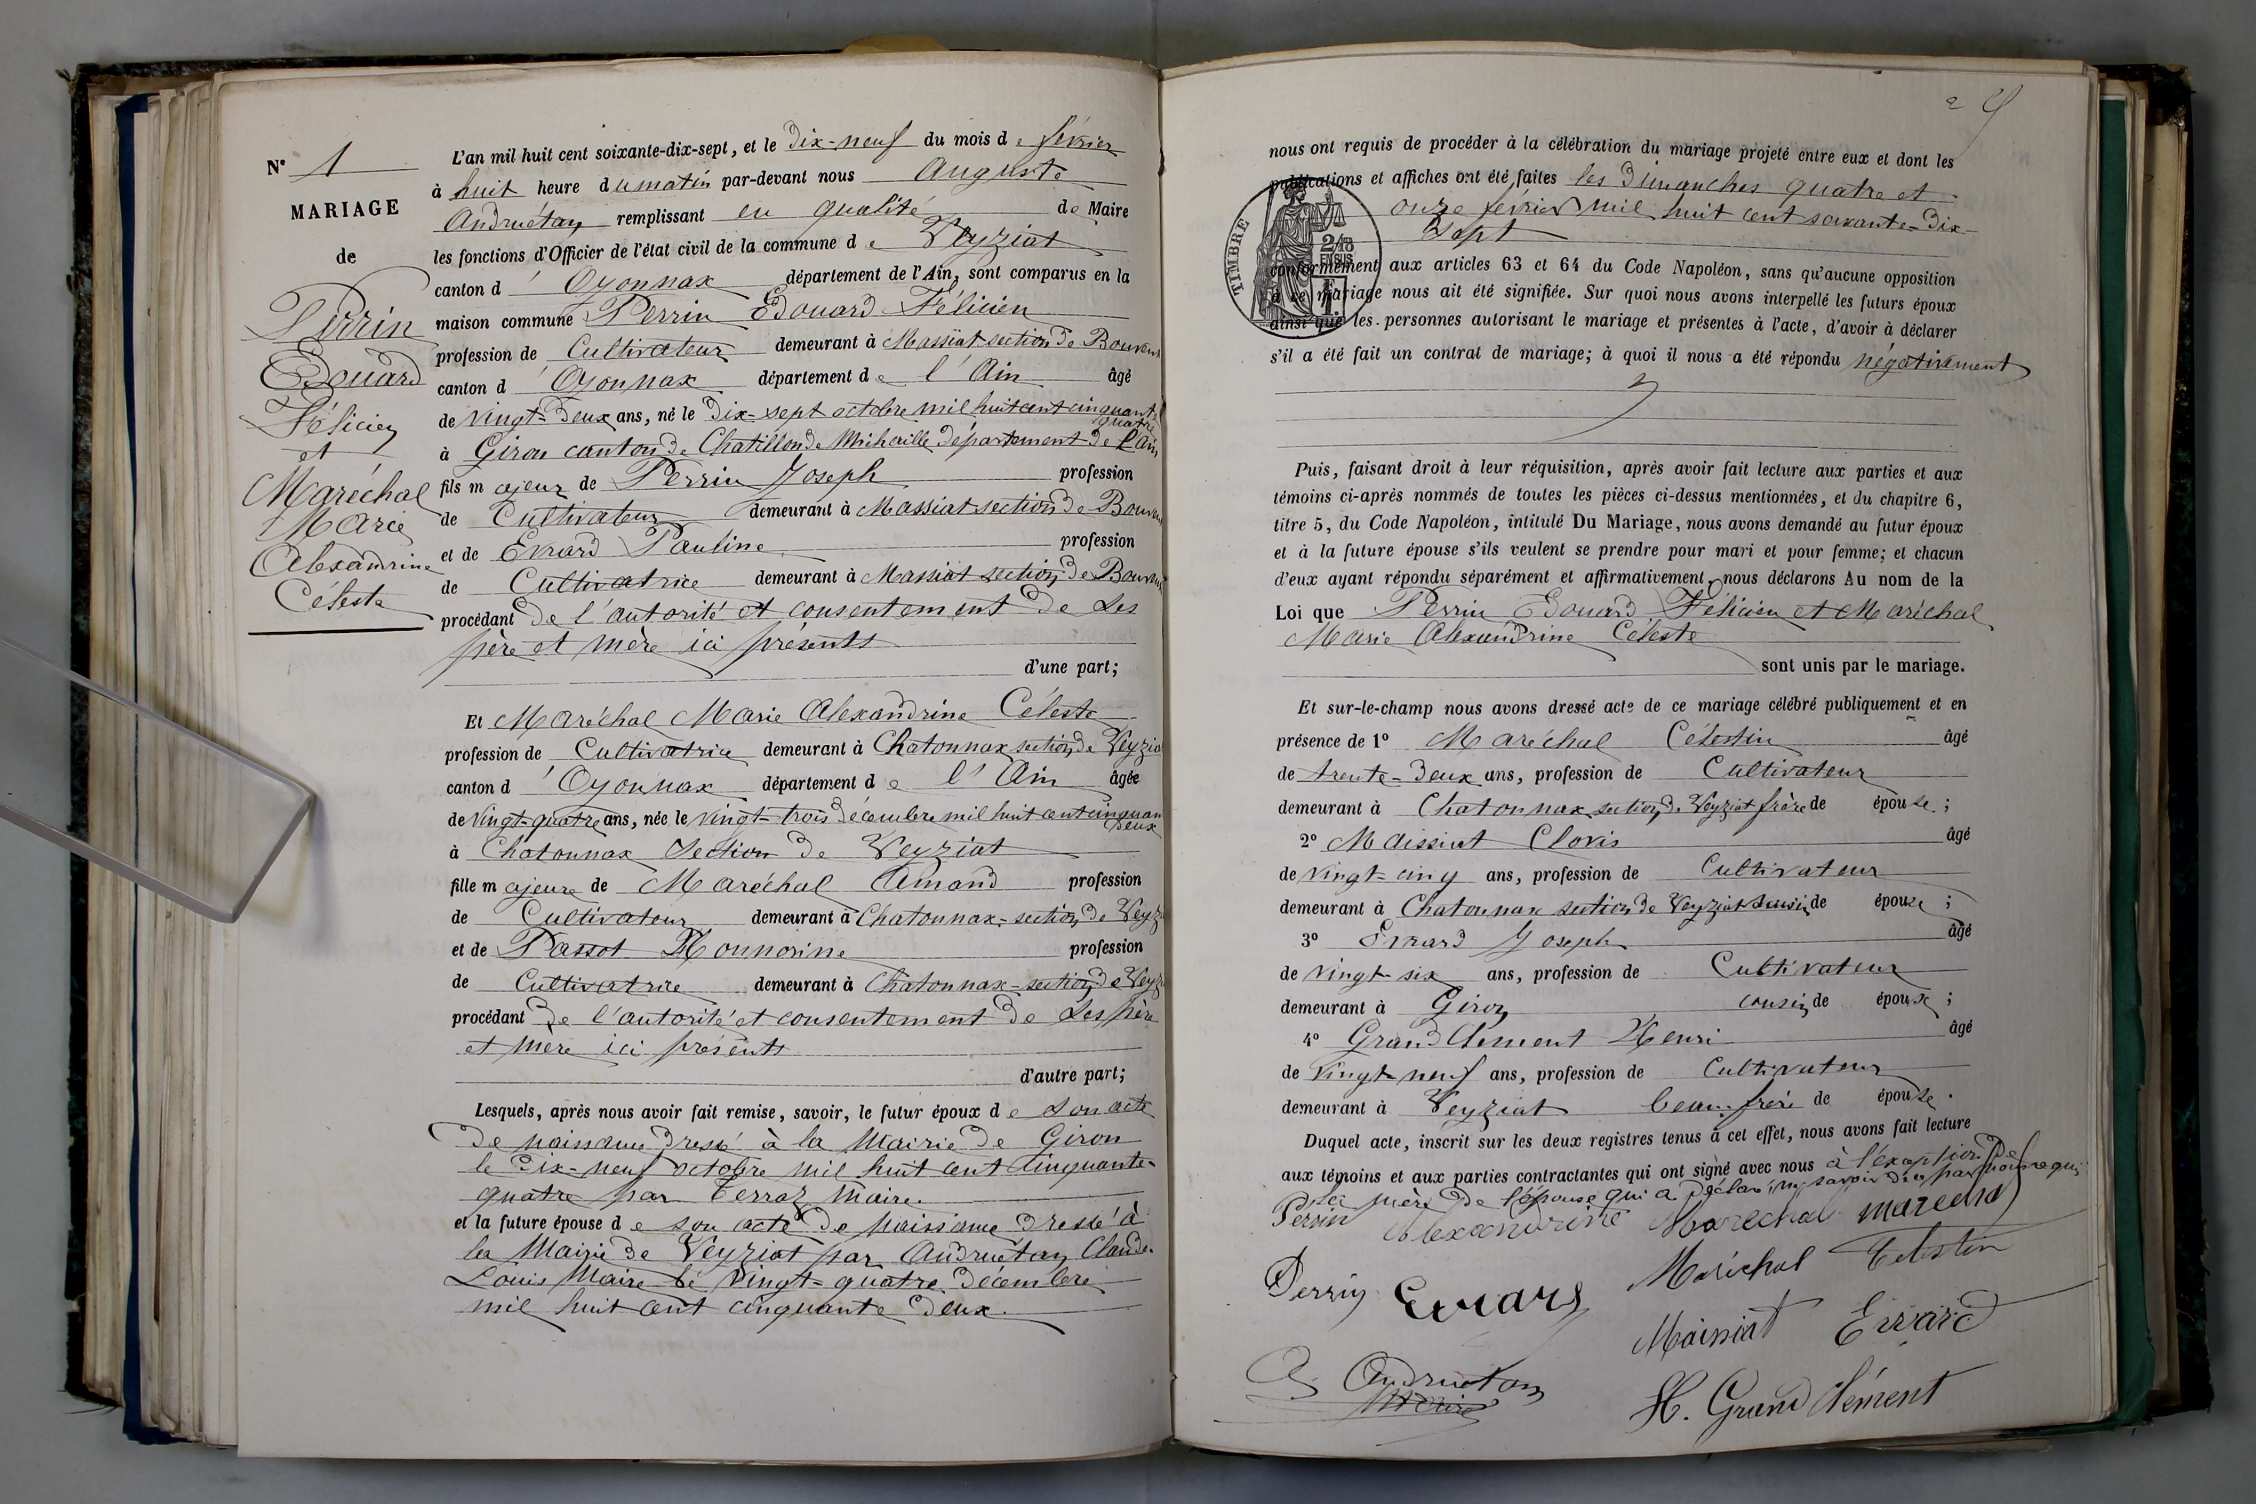 N° 1
MARIAGE
de
Perrin
Edouard
Félicien
et
Maréchal
Marie
Alexandrine
Céleste
L'an mil huit cent soixante-dix-sept, et le dix-neuf du mois de février
à huit heure du matin par-devant nous Auguste
Andruétan remplissant en qualité de Maire
les fonctions d'Officier de l'état civil de la commune de Veyziat
canton d'Oyonnax département de l'Ain, sont comparus en la
maison commune Perrin Edouard Félicien
profession de Cultivateur demeurant à Massiat section de Bouvent
canton d'Oyonnax département de l'Ain âgé
de vingt-deux ans, né le dix-sept octobre mil huit cent cinquante
quatre
à Giron canton de Chatillon de Michaille département de l'Ain
fils majeur de Perrin Joseph profession
de Cultivateur demeurant à Massiat section de Bouvent
et de Evrard Pauline profession
de Cultivatrice demeurant à Massiat section de Bouvent
procédant de l'autorité et consentement de ses
père et mère ici présents
d'une part;
Et Maréchal Marie Alexandrine Céleste
profession de Cultivatrice demeurant à Chatonnax section de Veyziat
canton d'Oyonnax département de l'Ain âgée
de vingt-quatre ans, née le vingt-trois décembre mil huit cent cinquan
deux
à Chatonnax section de Veyziat
fille majeure de Maréchal Amand profession
de Cultivateur demeurant à Chatonnax-section de Veyz
et de Passot Honnorine profession
de Cultivatrice demeurant à Chatonnax-section de Veyz
procédant de l'autorité et consentement de ses père
et mère ici présents
d'autre part;
Lesquels, après nous avoir fait remise, savoir, le futur époux de son acte
de naissance dressé à la Mairie de Giron
le dix-neuf octobre mil huit cent cinquante-
quatre par Terraz Maire.
et la future épouse de son acte de naissance dressé à
la Mairie de Veyziat par Andruétan Claude-
Louis Maire le vingt-quatre décembre
mil huit cent cinquante deux.
2
nous ont requis de procéder à la célébration du mariage projeté entre eux et dont les
publications et affiches ont été faites les dimanches quatre et
onze février mil huit cent soixante-dix-
sept
TIMBRE
2/10
EN SUS
conformément aux articles 63 et 64 du Code Napoléon, sans qu'aucune opposition
à ce mariage nous ait été signifiée. Sur quoi nous avons interpellé les futurs époux
ainsi que les personnes autorisant le mariage et présentes à l'acte, d'avoir à déclarer
s'il a été fait un contrat de mariage; à quoi il nous a été répondu négativement
Puis, faisant droit à leur réquisition, après avoir fait lecture aux parties et aux
témoins ci-après nommés de toutes les pièces ci-dessus mentionnées, et du chapitre 6,
titre 5, du Code Napoléon, intitulé Du Mariage, nous avons demandé au futur époux
et à la future épouse s'ils veulent se prendre pour mari et pour femme; et chacun
d'eux ayant répondu séparément et affirmativement, nous déclarons Au nom de la
Loi que Perrin Edouard Félicien et Maréchal
Marie Alexandrine Céleste
sont unis par le mariage.
Et sur-le-champ nous avons dressé acte de ce mariage célébré publiquement et en
présence de 1° Maréchal Célestin âgé
de trente-deux ans, profession de Cultivateur
demeurant à Chatonnax section de Veyziat frère de épouse;
2° Maissiat Clovis âgé
de vingt-cinq ans, profession de Cultivateur
demeurant à Chatonnax section de Veyziat cousin de épouse;
3° Evrard Joseph âgé
de vingt six ans, profession de Cultivateur
demeurant à Giron cousin de épouse;
4° Grand Clement Henri âgé
de vingt neuf ans, profession de Cultivateur
demeurant à Veyziat beau-frère de épouse.
Duquel acte, inscrit sur les deux registres tenus à cet effet, nous avons fait lecture
aux témoins et aux parties contractantes qui ont signé avec nous à l'exception de
la mère de l'épouse qui a déclaré ne savoir
Perrin Alexandrine Marechal marechal
Maréchal Celestin
Perrin Evrard
Maissiat Evrard
A. Andruétan
Maire
H. Grand Clément